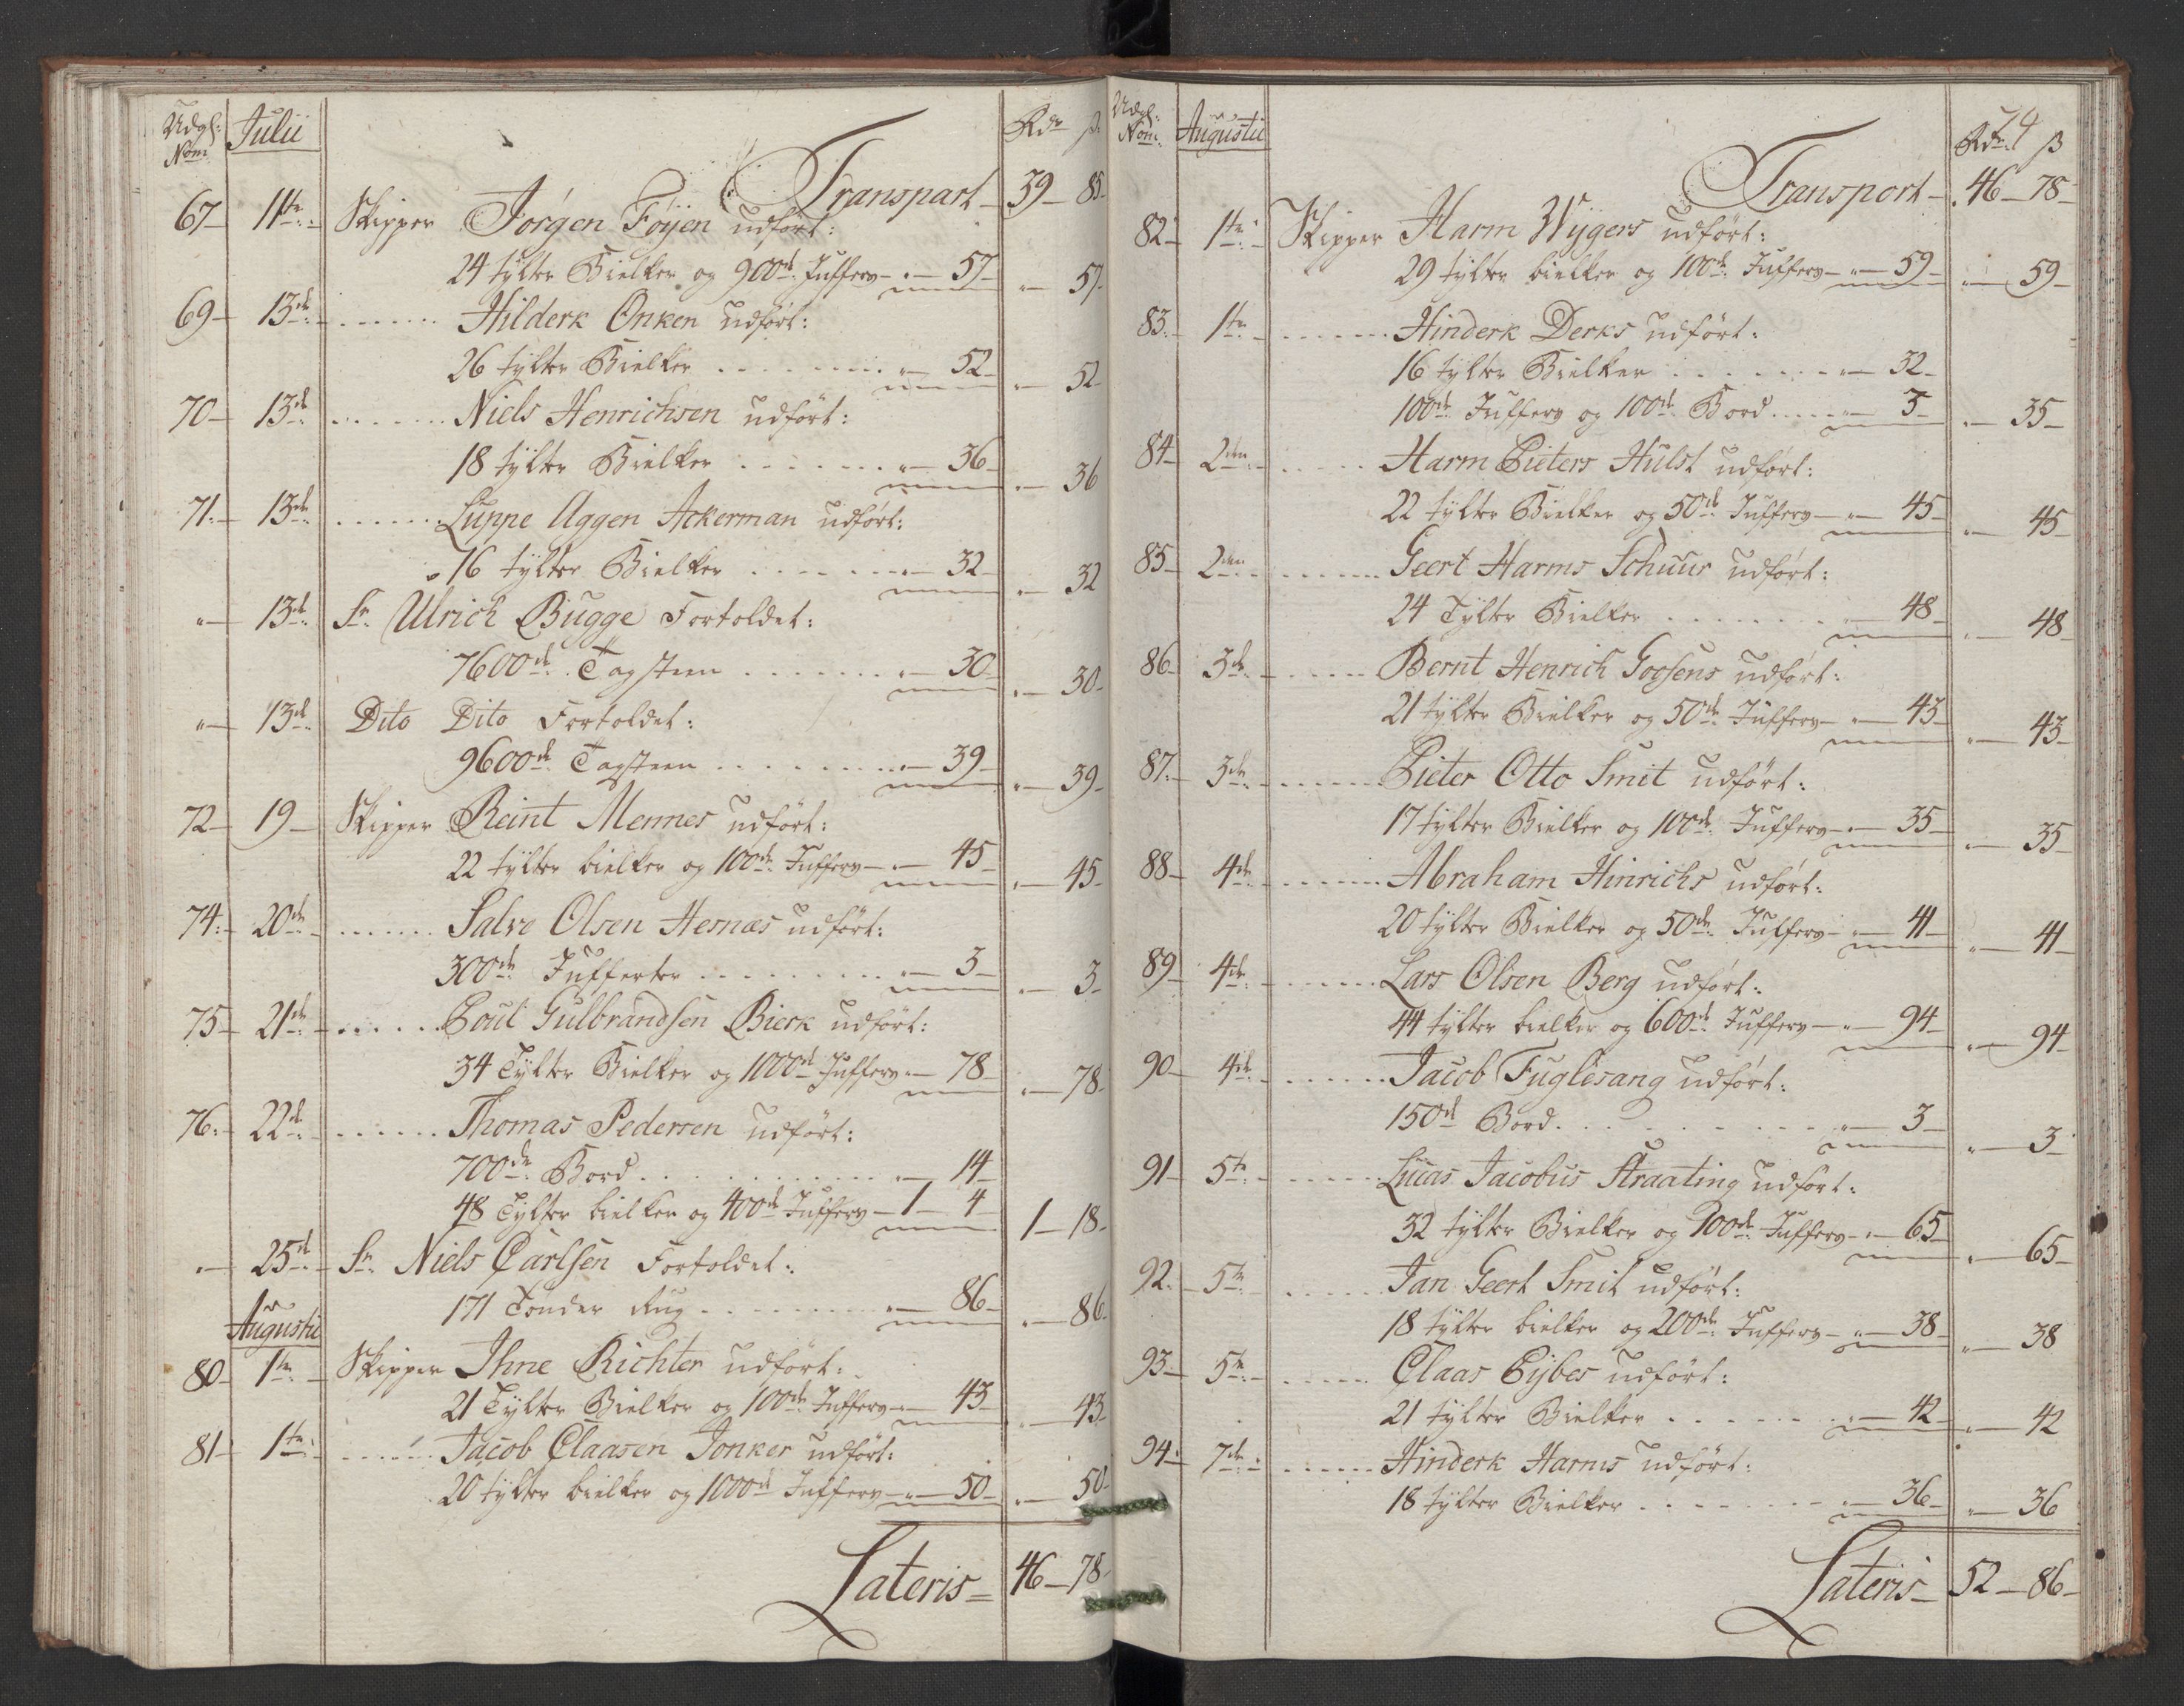 Udgf: Julii Rdr ß
Nom:
Transport 39 - 85
67 - 11te Skipper Jørgen Føyen udført:
24 tylter Bielker og 900de Jufferv - " - 57 - " - 57
69 - 13de ...... Hilderk Onken udført:
26 tylter Bielker ...... " - 52 - " - 52
70 - 13de ...... Niels Henrichsen udført:
18 tylter Bielker ...... " - 36 - " - 36
71 - 13de ...... Luppe Aggen Ackerman udført:
16 tylter Bielker ...... " - 32 - " - 32
" - 13de Sr. Ulrich Bugge Fortoldet:
7600de Tagsteen ...... " - 30 - " - 30
" - 13de Dito Dito Fortoldet:
9600de Tagsteen ...... " - 39 - " - 39
72 - 19 - Skipper Reint Mennes udført:
22 tylter bielker og 100de Jufferv - " - 45 - " - 45
74 - 20de ...... Salve Olsen Hesnæs udført:
300de Jufferter ...... " - 3 - " - 3
75 - 21de ...... Poul Gulbrandsen Bierk udført:
34 Tylter Bielker og 1000de Jufferv " - 78 - " - 78
76 - 22de ...... Thomas Pedersen udført:
700de Bord ...... " - 14
48 Tylter bielker og 400de Jufferv - 1 - 4 - 1 - 18
" - 25de Sr. Niels Carlsen Fortoldet:
171 Tønder Rug ...... " - 86 - " - 86
Augustii
80 - 1te Skipper Ihne Richter udført:
21 Tylter Bielker og 100de Jufferv " - 43 - " - 43
81 - 1te ...... Jacob Claasen Jonker udført:
20 tylter bielker og 1000de Jufferv - " - 50 - " - 50
Lateris = 46 - 78
74
Udgf: Augustii Rdr ß
Nom:
Transport - 46 - 78
82 - 1te Skipper Harm Wygers udført:
29 tylter bielker og 100de Jufferv - " - 59 - " - 59
83 - 1te ...... Hinderk Derks udført:
16 tylter Bielker ...... " - 32
100de Jufferv og 100de Bord .... " - 3 - " - 35
84 - 2den ..... Harm Pieters Hulst udført:
22 tylter Bielker og 50de Jufferv - " - 45 - " - 45
85 - 2den ...... Geert Harms Schuur udført:
24 Tylter Bielker ...... " - 48 - " - 48
86 - 3de ...... Bernt Henrich Goosens udført:
21 tylter Bielker og 50de Jufferv - " - 43 - " - 43
87 - 3de ...... Pieter Otto Smit udført:
17 tylter Bielker og 100de Jufferv - " - 35 - " - 35
88 - 4de ...... Abraham Hinrichs udført:
20 tylter Bielker og 50de Jufferv - " - 41 - " - 41
89 - 4de ...... Lars Olsen Berg udført:
44 tylter bielker og 600de Jufferv - " - 94 - " - 94
90 - 4de ...... Jacob Fuglesang udført:
150de Bord ...... " - 3 - " - 3
91 - 5te ...... Lucas Jacobus Straating udført:
32 tylter Bielker og 100de Jufferv - " - 65 - " - 65
92 - 5te ..... Jan Geert Smit udført:
18 tylter bielker og 200de Jufferv - " - 38 - " - 38
93 - 5te ..... Claas Eybes udført:
21 tylter Bielker ...... " - 42 - " - 42
94 - 7de ...... Hinderk Harms udført:
18 tylter Bielker ...... " - 36 - " - 36
Lateris - 52 - 86